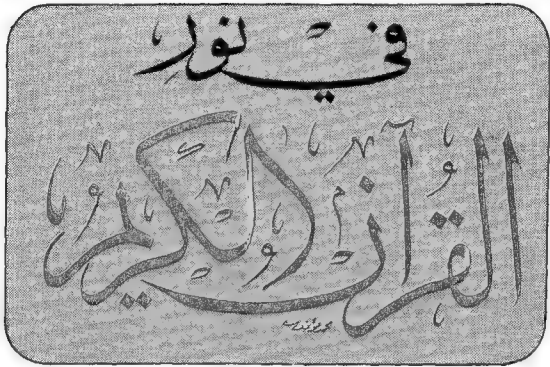 في نور
القرآن الكريم